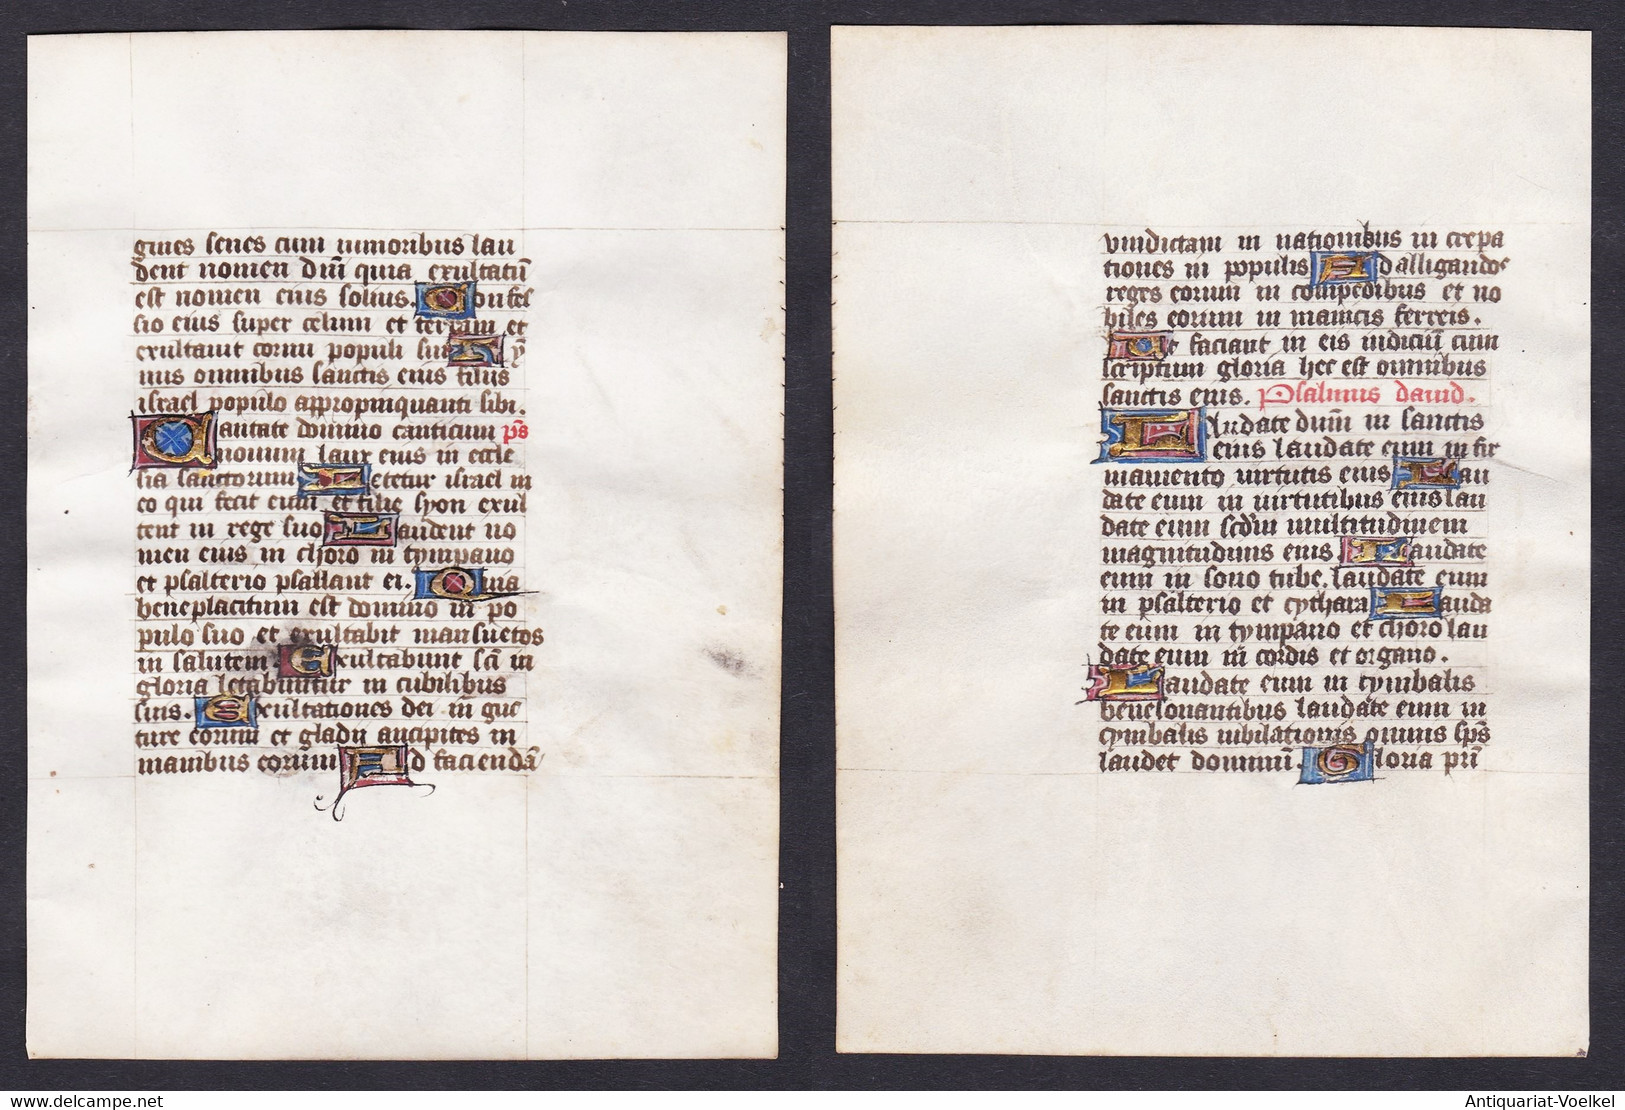 gines senes cum iunioribus lau
dent nomen dñi quia exultatũ
est nomen eius solius. Confes
sio eius super celum et terram et
exultauit cornu populi sui Ỹ
nus omnibus sanctis eius filiis
israel populo appropinquanti sibi.
Cantate domino canticum p̃s
nouum laux eius in eccle
sia sanctorum Letetur israel in
eo qui fecit eum et filie syon exul
tent in rege suo Laudent no
men eius in choro in tympano
et psalterio psallant ei. Quia
beneplacitum est domino in po
pulo suo et exultabit mansuetos
in salutem. Exultabunt sc̃i in
gloria letabuntur in cubilibus
suis. Exultationes dei in gut
ture eorum et gladii ancipites in
manibus eorum Ad faciendã
vindictam in nationibus in crepa
tiones in populis Ad alligandos
reges eorum in compedibus et no
biles eorum in manicis ferreis.
Vt faciant in eis iudiciũ cum
scriptum gloria hec est omnibus
sanctis eius. Psalmus dauid.
Laudate dum̃ in sanctis
eius laudate eum in fir
mamento uirtutis eius Lau
date eum in uirtutibus eius lau
date eum scd̃m multitudinem
magnitudinis eius. Laudate
eum in sono tube. laudate eum
in psalterio et cythara Lauda
te eum in tympano et choro lau
date eum iñ cordis et organo.
Laudate eum in cymbalis
benesonantibus laudate eum in
cymbalis iubilationis omnis sp̃s
laudet dominum. Gloria pr̃i
Antiquariat-Voelkel